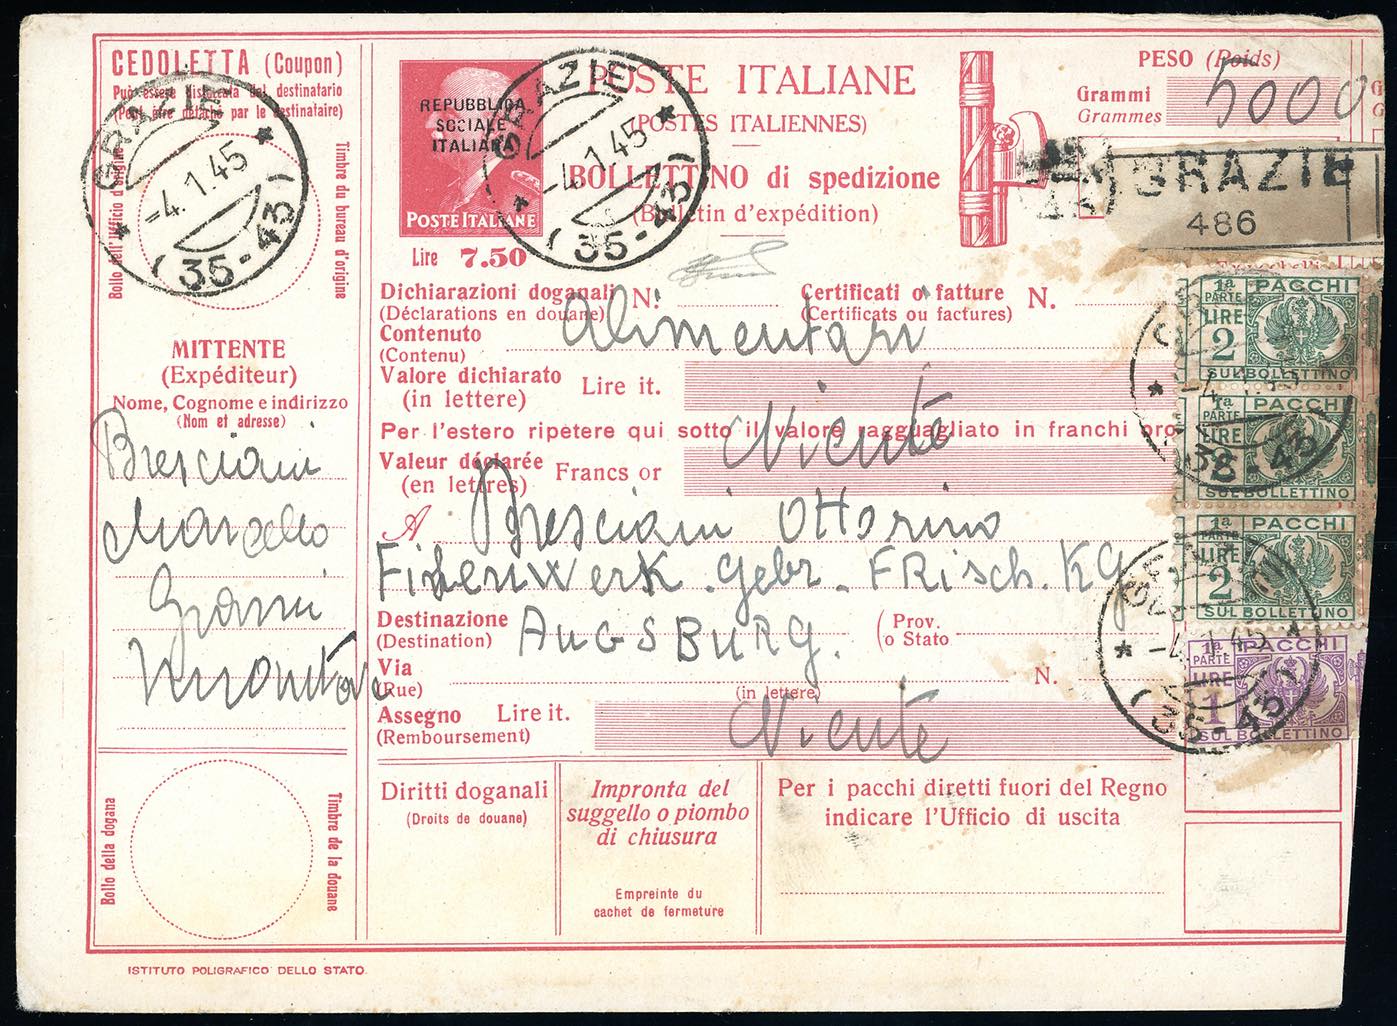 CEDOLETTA (Coupon)
Può essere distaccata dal destinatario
(Peut être détaché par le destinataire)
GRAZIE
-4.1.45
(35-43)
Bollo dell'Ufficio d'origine
Timbre du bureau d'origine
MITTENTE
(Expéditeur)
Nome, Cognome e indirizzo
(Nom et adresse)
Bresciani
Marcello
Bollo della dogana
Timbre de la douane
REPUBBLICA
SOCIALE
ITALIANA
POSTE ITALIANE
Lire 7.50
GRAZIE
-4.1.45
(35-43)
POSTE ITALIANE
(POSTES ITALIENNES)
BOLLETTINO di spedizione
(Bulletin d'expédition)
PESO (Poids)
Grammi
Grammes
5000
GRAZIE
486
Dichiarazioni doganali N.
(Déclarations en douane)
Certificati o fatture N.
(Certificats ou factures)
Contenuto
(Contenu)
Alimentari
Valore dichiarato Lire it.
(in lettere)
Niente
Per l'estero ripetere qui sotto il valore ragguagliato in franchi oro
Valeur déclarée Francs or
(en lettres)
A Bresciani Ottorino
Gebr. FRisch. KG
Destinazione
(Destination)
AUGSBURG.
(Prov.
o Stato
Via
(Rue)
N.
(in lettere)
Assegno Lire it.
(Remboursement)
Niente
1ª PARTE PACCHI
LIRE 2
SUL BOLLETTINO
1ª PARTE PACCHI
LIRE
SUL BOLLETTINO
1ª PARTE PACCHI
LIRE 2
SUL BOLLETTINO
1ª PARTE PACCHI
LIRE 1
SUL BOLLETTINO
-4.1.45
(35-43)
Diritti doganali
(Droits de douane)
Impronta del
suggello o piombo
di chiusura
Empreinte du
cachet de fermeture
Per i pacchi diretti fuori del Regno
indicare l'Ufficio di uscita
ISTITUTO POLIGRAFICO DELLO STATO